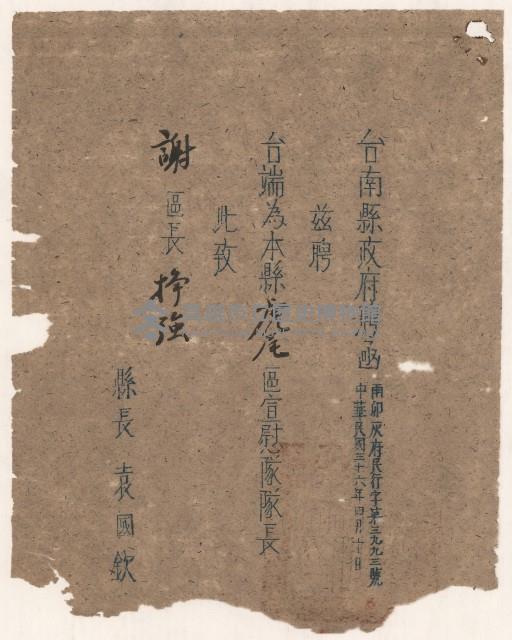 台南縣政府聘函
南卯灰府民行字第三九九三號
中華民國三十六年四月十日
玆聘
台端為本縣虎尾區宣慰隊隊長
此致
謝區長掙強
縣長袁國欽